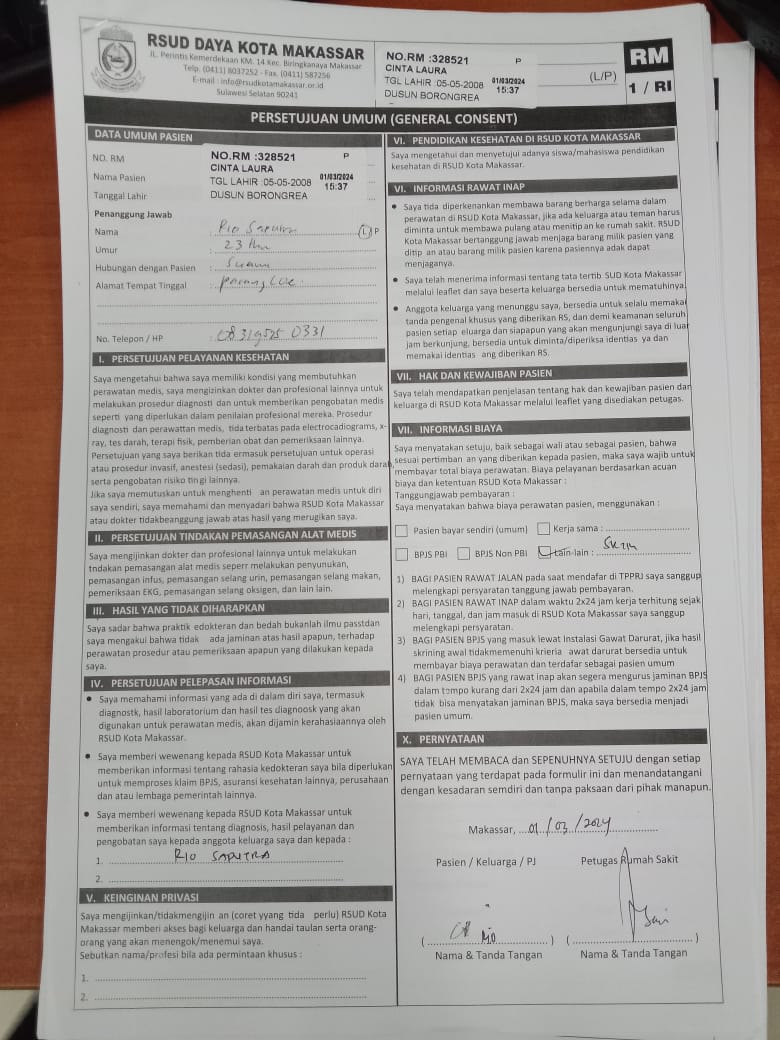 RSUD DAYA KOTA MAKASSAR
JL. Perintis Kemerdekaan KM. 14 Kec. Biringkanaya Makassar
Telp. (0411) 8037252 - Fax. (0411) 587256
E-mail : info@rsudkotamakassar.or.id
Sulawesi Selatan 90241
NO.RM :328521 P
CINTA LAURA
TGL LAHIR :05-05-2008 01/03/2024 15:37
DUSUN BORONGREA
(L/P)
RM
1 / RI
PERSETUJUAN UMUM (GENERAL CONSENT)
DATA UMUM PASIEN
NO. RM NO.RM :328521 P
Nama Pasien CINTA LAURA
TGL LAHIR :05-05-2008 01/03/2024 15:37
Tanggal Lahir DUSUN BORONGREA
Penanggung Jawab
Nama : Rio Saputra L P
Umur : 23 thn
Hubungan dengan Pasien : Suami
Alamat Tempat Tinggal : parangloe
No. Telepon / HP : 083195250331
I. PERSETUJUAN PELAYANAN KESEHATAN
Saya mengetahui bahwa saya memiliki kondisi yang membutuhkan
perawatan medis, saya mengizinkan dokter dan profesional lainnya untuk
melakukan prosedur diagnosti dan untuk memberikan pengobatan medis
seperti yang diperlukan dalam penilaian profesional mereka. Prosedur
diagnosti dan perawattan medis, tida terbatas pada electrocadiograms, x-
ray, tes darah, terapi fisik, pemberian obat dan pemeriksaan lainnya.
Persetujuan yang saya berikan tida ermasuk persetujuan untuk operasi
atau prosedur invasif, anestesi (sedasi), pemakaian darah dan produk darah
serta pengobatan risiko tin gi lainnya.
Jika saya memutuskan untuk menghenti an perawatan medis untuk diri
saya sendiri, saya memahami dan menyadari bahwa RSUD Kota Makassar
atau dokter tidakbeanggung jawab atas hasil yang merugikan saya.
II. PERSETUJUAN TINDAKAN PEMASANGAN ALAT MEDIS
Saya mengijinkan dokter dan profesional lainnya untuk melakukan
tndakan pemasangan alat medis seperr melakukan penyunukan,
pemasangan infus, pemasangan selang urin, pemasangan selang makan,
pemeriksaan EKG, pemasangan selang oksigen, dan lain lain.
III. HASIL YANG TIDAK DIHARAPKAN
Saya sadar bahwa praktik edokteran dan bedah bukanlah ilmu passtdan
saya mengakui bahwa tidak ada jaminan atas hasil apapun, terhadap
perawatan prosedur atau pemeriksaan apapun yang dilakukan kepada
saya.
IV. PERSETUJUAN PELEPASAN INFORMASI
• Saya memahami informasi yang ada di dalam diri saya, termasuk
diagnostk, hasil laboratorium dan hasil tes diagnoosk yang akan
digunakan untuk perawatan medis, akan dijamin kerahasiaannya oleh
RSUD Kota Makassar.
• Saya memberi wewenang kepada RSUD Kota Makassar untuk
memberikan informasi tentang rahasia kedokteran saya bila diperlukan
untuk memproses klaim BPJS, asuransi kesehatan lainnya, perusahaan
dan atau lembaga pemerintah lainnya.
• Saya memberi wewenang kepada RSUD Kota Makassar untuk
memberikan informasi tentang diagnosis, hasil pelayanan dan
pengobatan saya kepada anggota keluarga saya dan kepada :
1. RIO SAPUTRA
2.
V. KEINGINAN PRIVASI
Saya mengijinkan/tidakmengijin an (coret yyang tida perlu) RSUD Kota
Makassar memberi akses bagi keluarga dan handai taulan serta orang-
orang yang akan menengok/menemui saya.
Sebutkan nama/profesi bila ada permintaan khusus :
1.
2.
VI. PENDIDIKAN KESEHATAN DI RSUD KOTA MAKASSAR
Saya mengetahui dan menyetujui adanya siswa/mahasiswa pendidikan
kesehatan di RSUD Kota Makassar.
VI. INFORMASI RAWAT INAP
• Saya tida diperkenankan membawa barang berharga selama dalam
perawatan di RSUD Kota Makassar, jika ada keluarga atau teman harus
diminta untuk membawa pulang atau menitip an ke rumah sakit. RSUD
Kota Makassar bertanggung jawab menjaga barang milik pasien yang
ditip an atau barang milik pasien karena pasiennya adak dapat
menjaganya.
• Saya telah menerima informasi tentang tata tertib SUD Kota Makassar
melalui leaflet dan saya beserta keluarga bersedia untuk mematuhinya.
• Anggota keluarga yang menunggu saya, bersedia untuk selalu memakai
tanda pengenal khusus yang diberikan RS, dan demi keamanan seluruh
pasien setiap eluarga dan siapapun yang akan mengunjungi saya di luar
jam berkunjung, bersedia untuk diminta/diperiksa identias ya dan
memakai identias ang diberikan RS.
VII. HAK DAN KEWAJIBAN PASIEN
Saya telah mendapatkan penjelasan tentang hak dan kewajiban pasien dan
keluarga di RSUD Kota Makassar melalui leaflet yang disediakan petugas.
VII. INFORMASI BIAYA
Saya menyatakan setuju, baik sebagai wali atau sebagai pasien, bahwa
sesuai pertimban an yang diberikan kepada pasien, maka saya wajib untuk
membayar total biaya perawatan. Biaya pelayanan berdasarkan acuan
biaya dan ketentuan RSUD Kota Makassar :
Tanggungjawab pembayaran :
Saya menyatakan bahwa biaya perawatan pasien, menggunakan :
Pasien bayar sendiri (umum) Kerja sama :
BPJS PBI BPJS Non PBI Lain-lain : SKTM
1) BAGI PASIEN RAWAT JALAN pada saat mendafar di TPPRJ saya sanggup
melengkapi persyaratan tanggung jawab pembayaran.
2) BAGI PASIEN RAWAT INAP dalam waktu 2x24 jam kerja terhitung sejak
hari, tanggal, dan jam masuk di RSUD Kota Makassar saya sanggup
melengkapi persyaratan.
3) BAGI PASIEN BPJS yang masuk lewat Instalasi Gawat Darurat, jika hasil
skrining awal tidakmemenuhi krieria awat darurat bersedia untuk
membayar biaya perawatan dan terdafar sebagai pasien umum
4) BAGI PASIEN BPJS yang rawat inap akan segera mengurus jaminan BPJS
dalam tempo kurang dari 2x24 jam dan apabila dalam tempo 2x24 jam
tidak bisa menyatakan jaminan BPJS, maka saya bersedia menjadi
pasien umum.
X. PERNYATAAN
SAYA TELAH MEMBACA dan SEPENUHNYA SETUJU dengan setiap
pernyataan yang terdapat pada formulir ini dan menandatangani
dengan kesadaran semdiri dan tanpa paksaan dari pihak manapun.
Makassar, 01/03/2024
Pasien / Keluarga / PJ Petugas Rumah Sakit
( Rio ) ( )
Nama & Tanda Tangan Nama & Tanda Tangan